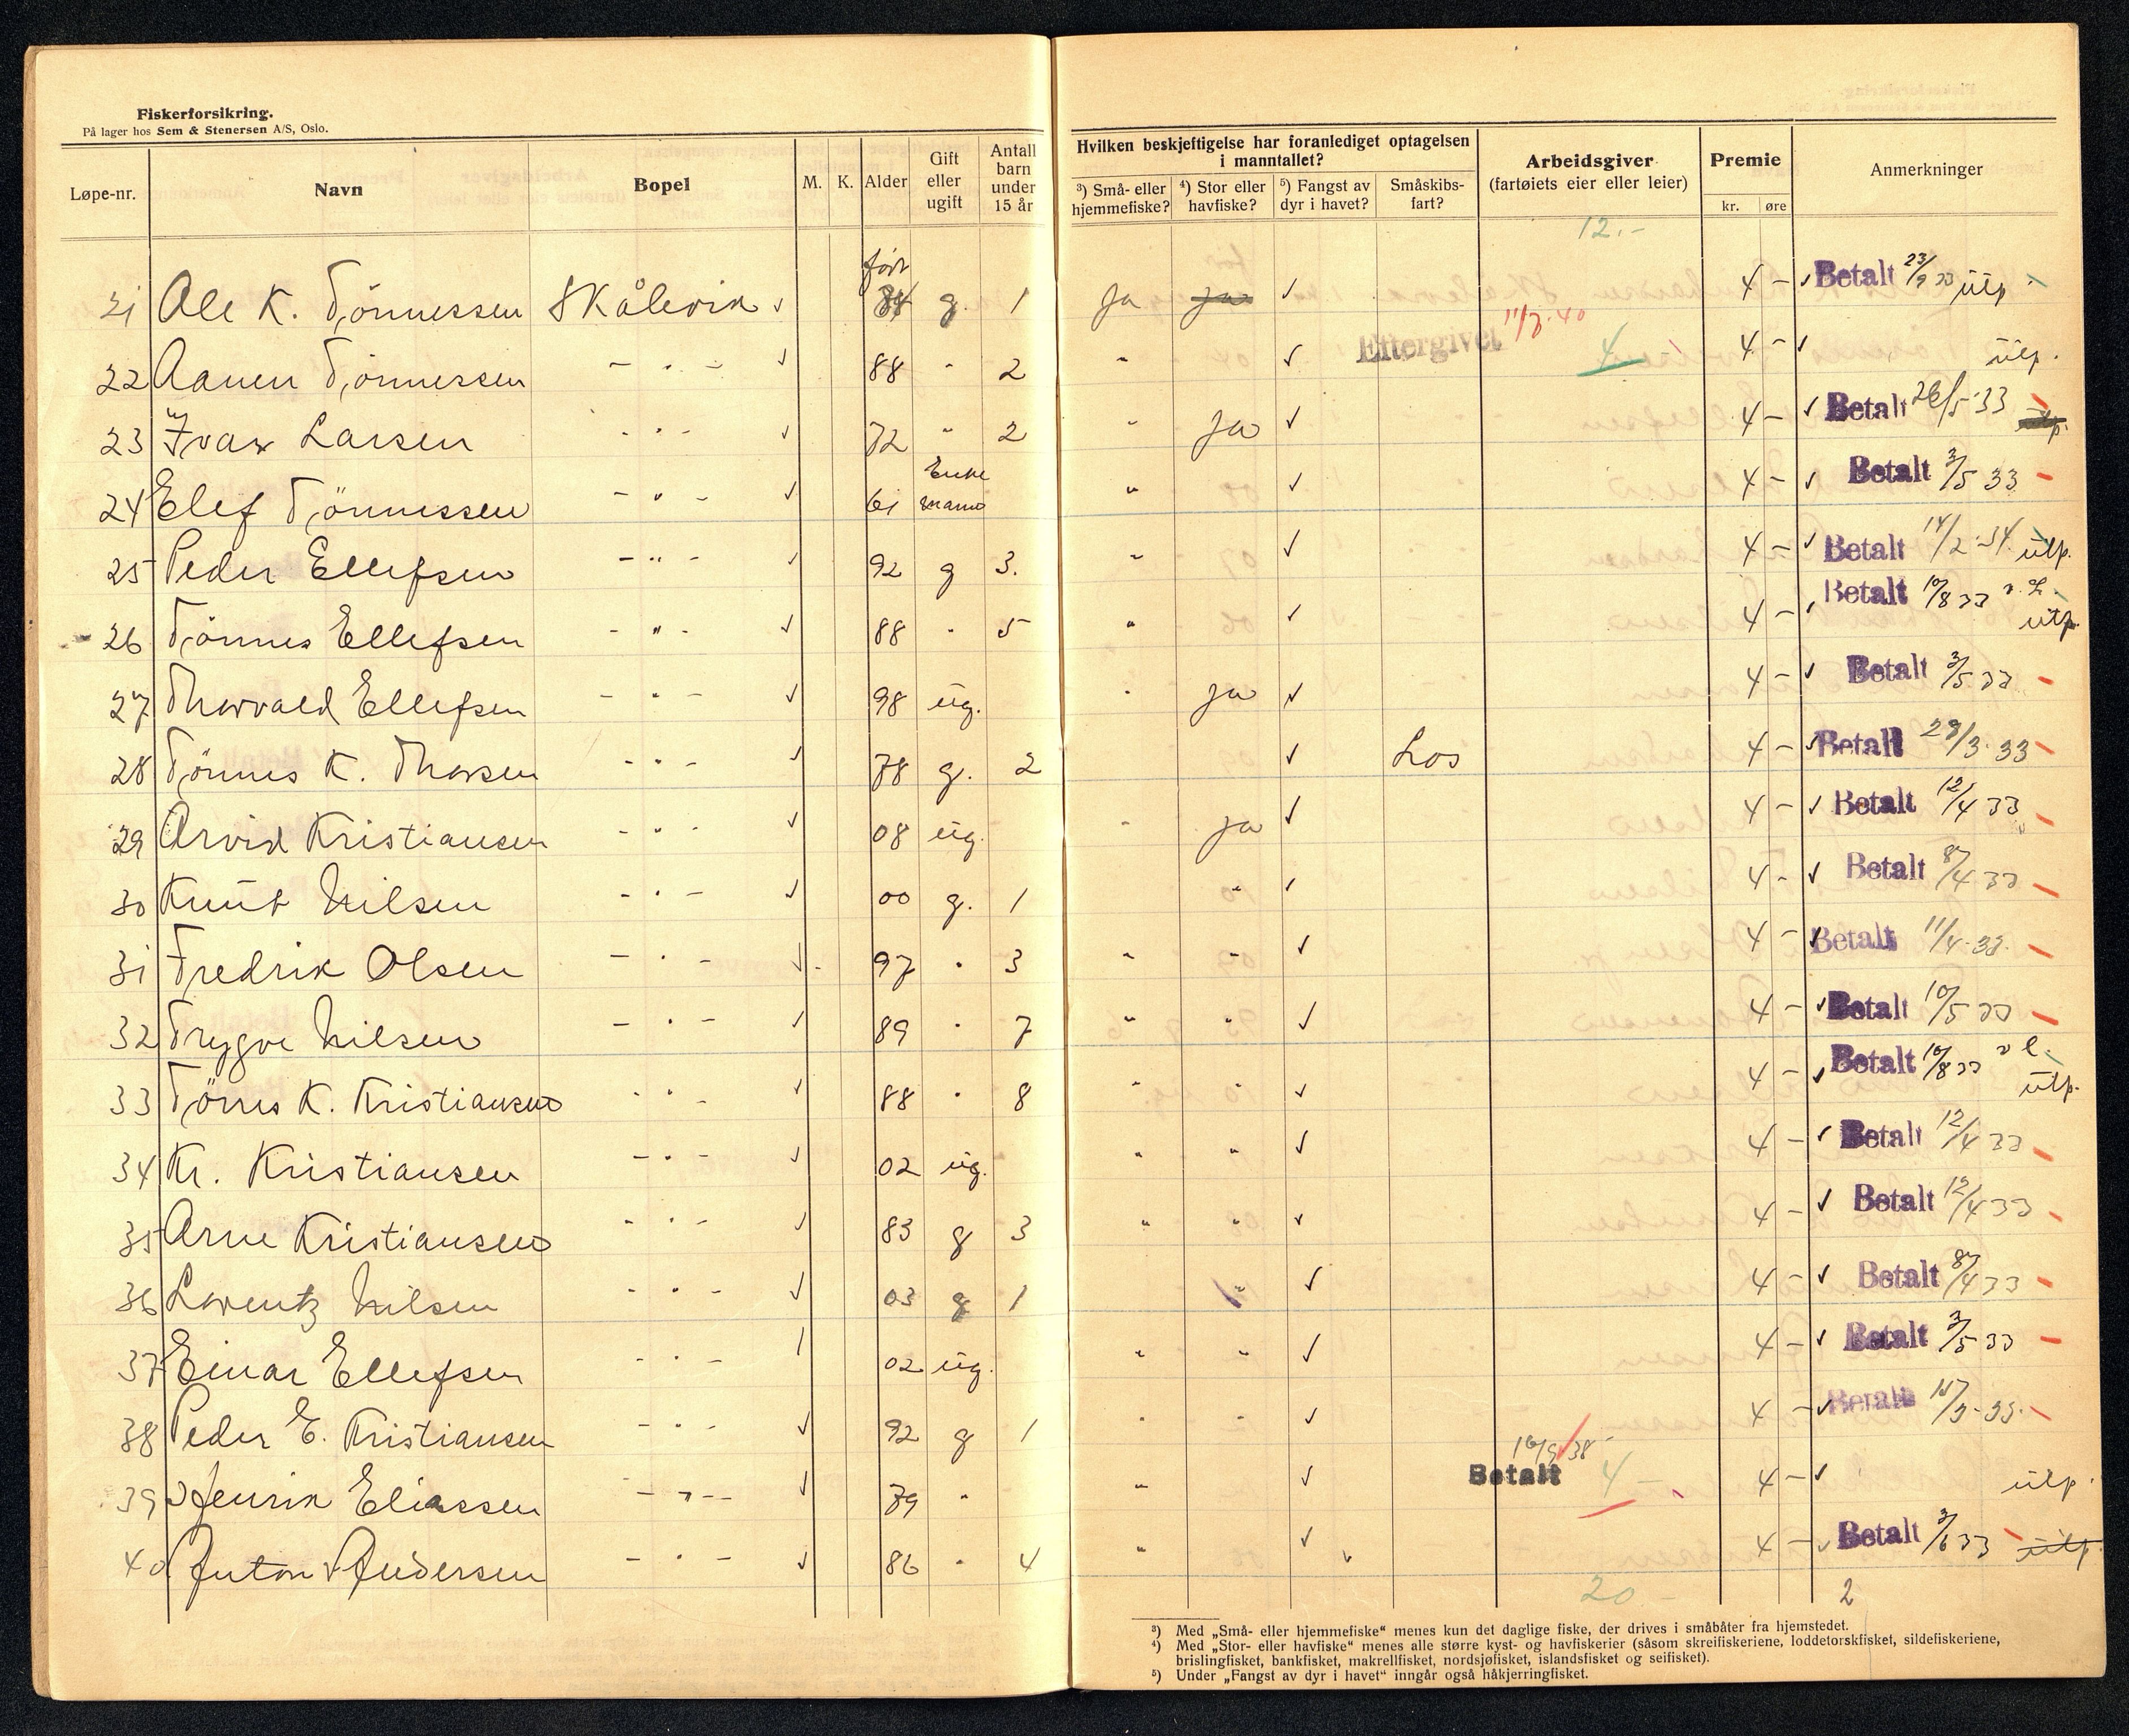 Fiskerforsikring.
På lager hos Sem & Stenersen A/S, Oslo.
Løpe-nr. Navn Bopel M. K. Alder Gift eller ugift Antall barn under 15 år
Hvilken beskjeftigelse har foranlediget optagelsen i manntallet?
³) Små- eller hjemmefiske? ⁴) Stor eller havfiske? ⁵) Fangst av dyr i havet? Småskibsfart?
Arbeidsgiver (fartøiets eier eller leier) Premie kr. øre Anmerkninger
12.-
født
21 Ole K. Tönnessen Skålevik ✓ g. 1 ja ja ✓ 4 - ✓ Betalt 23/9 33 ulp
22 Aanen Tönnessen - " - ✓ 88 " 2 " ✓ Eftergivet 11/3.40 4 4 - ✓ ulp.
23 Ivar Larsen - " - ✓ 72 " 2 " ja ✓ 4 - ✓ Betalt 26/5 33 ulp.
24 Elef Tönnessen - " - ✓ 61 Enkemann " ✓ 4 - ✓ Betalt 3/5 33
25 Peder Ellefsen - " - ✓ 92 g 3. " ✓ 4 - ✓ Betalt 14/2-34. utp.
26 Tönnes Ellefsen - " - ✓ 88 " 5 " ✓ 4 - ✓ Betalt 10/8 33 utp.
27 Thorvald Ellefsen - " - ✓ 98 ug. " ja ✓ 4 - ✓ Betalt 3/5 33
28 Tönnes K. Thorsen - " - ✓ 78 g. 2 ✓ Los 4 - ✓ Betalt 29/3 33
29 Arvid Kristiansen - " - ✓ 08 ug. " ja ✓ 4 - ✓ Betalt 12/4 33
30 Knut Nilsen - " - ✓ 00 g. 1 " ✓ 4 - ✓ Betalt 8/4 33
31 Fredrik Olsen - " - ✓ 97 " 3 " " ✓ 4 - ✓ Betalt 11/4-33.
32 Trygve Nilsen - " - ✓ 89 " 7 " " ✓ 4 - ✓ Betalt 10/5 33
33 Törres K. Kristiansen - " - ✓ 88 " 8 " " ✓ 4 - ✓ Betalt 10/8 33 utp.
34 Kr. Kristiansen - " - ✓ 02 ug. " " ✓ 4 - ✓ Betalt 12/4 33
35 Arne Kristiansen - " - ✓ 83 g 3 " " ✓ 4 - ✓ Betalt 12/4 33
36 Lorentz Nilsen - " - ✓ 03 g 1 " ✓ 4 - ✓ Betalt 8/4 33
37 Einar Ellefsen - " - 02 ug. " " ✓ 4 - ✓ Betalt 3/5 33
38 Peder E. Kristiansen - " - ✓ 92 g 1 " " ✓ 4 - ✓ Betalt
39 Henrik Eliassen - " - ✓ 79 " " ✓ Betalt 16/9 38 4 - 4 - ✓ ulp.
40 Anton Andersen - " - ✓ 86 " 4 " ✓ 4 - ✓ Betalt 3/6 33 utp.
20 2
³) Med „Små- eller hjemmefiske“ menes kun det daglige fiske, der drives i småbåter fra hjemstedet.
⁴) Med „Stor- eller havfiske“ menes alle større kyst- og havfiskerier (såsom skreifiskeriene, loddetorskfisket, sildefiskeriene,
brislingfisket, bankfisket, makrellfisket, nordsjøfisket, islandsfisket og seifisket).
⁵) Under „Fangst av dyr i havet“ inngår også håkjerringfisket.